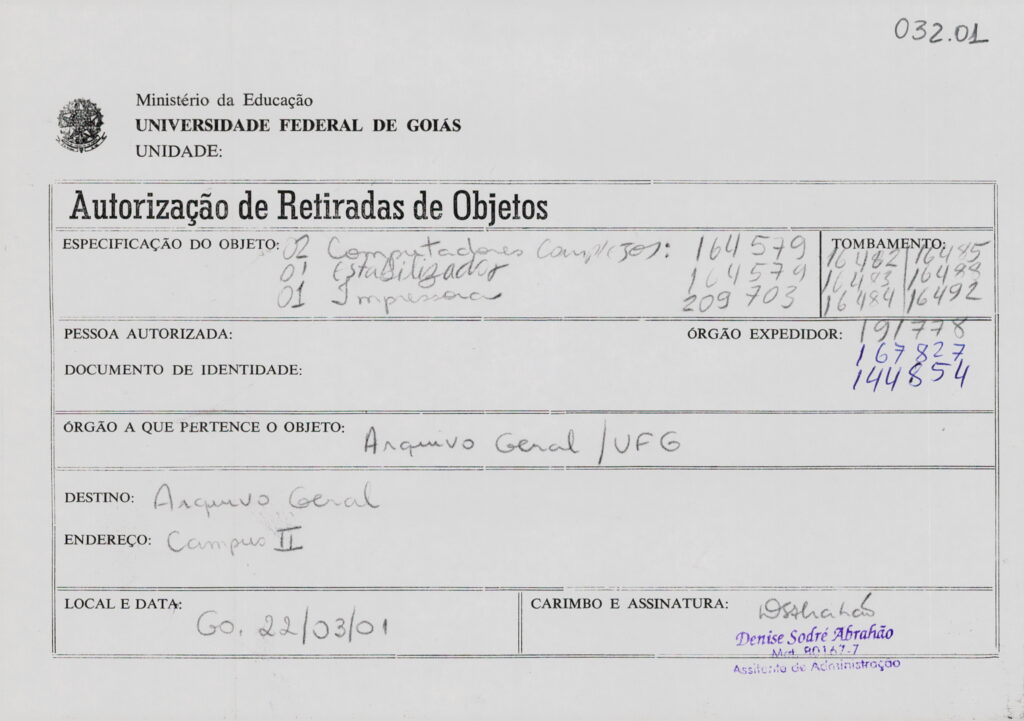 032.01
Ministério da Educação
UNIVERSIDADE FEDERAL DE GOIÁS
UNIDADE:
Autorização de Retiradas de Objetos
ESPECIFICAÇÃO DO OBJETO: 02 Computadores Completos: 164579
01 Estabilizador 164579
01 Impressora 209703
TOMBAMENTO:
16482 16485
16483 16488
16484 16492
PESSOA AUTORIZADA:
ÓRGÃO EXPEDIDOR: 191778
167827
144854
DOCUMENTO DE IDENTIDADE:
ÓRGÃO A QUE PERTENCE O OBJETO: Arquivo Geral / UFG
DESTINO: Arquivo Geral
ENDEREÇO: Campus II
LOCAL E DATA: Go. 22/03/01
CARIMBO E ASSINATURA: DSAbrahão
Denise Sodré Abrahão
Mat. 90167-7
Assitente de Administração